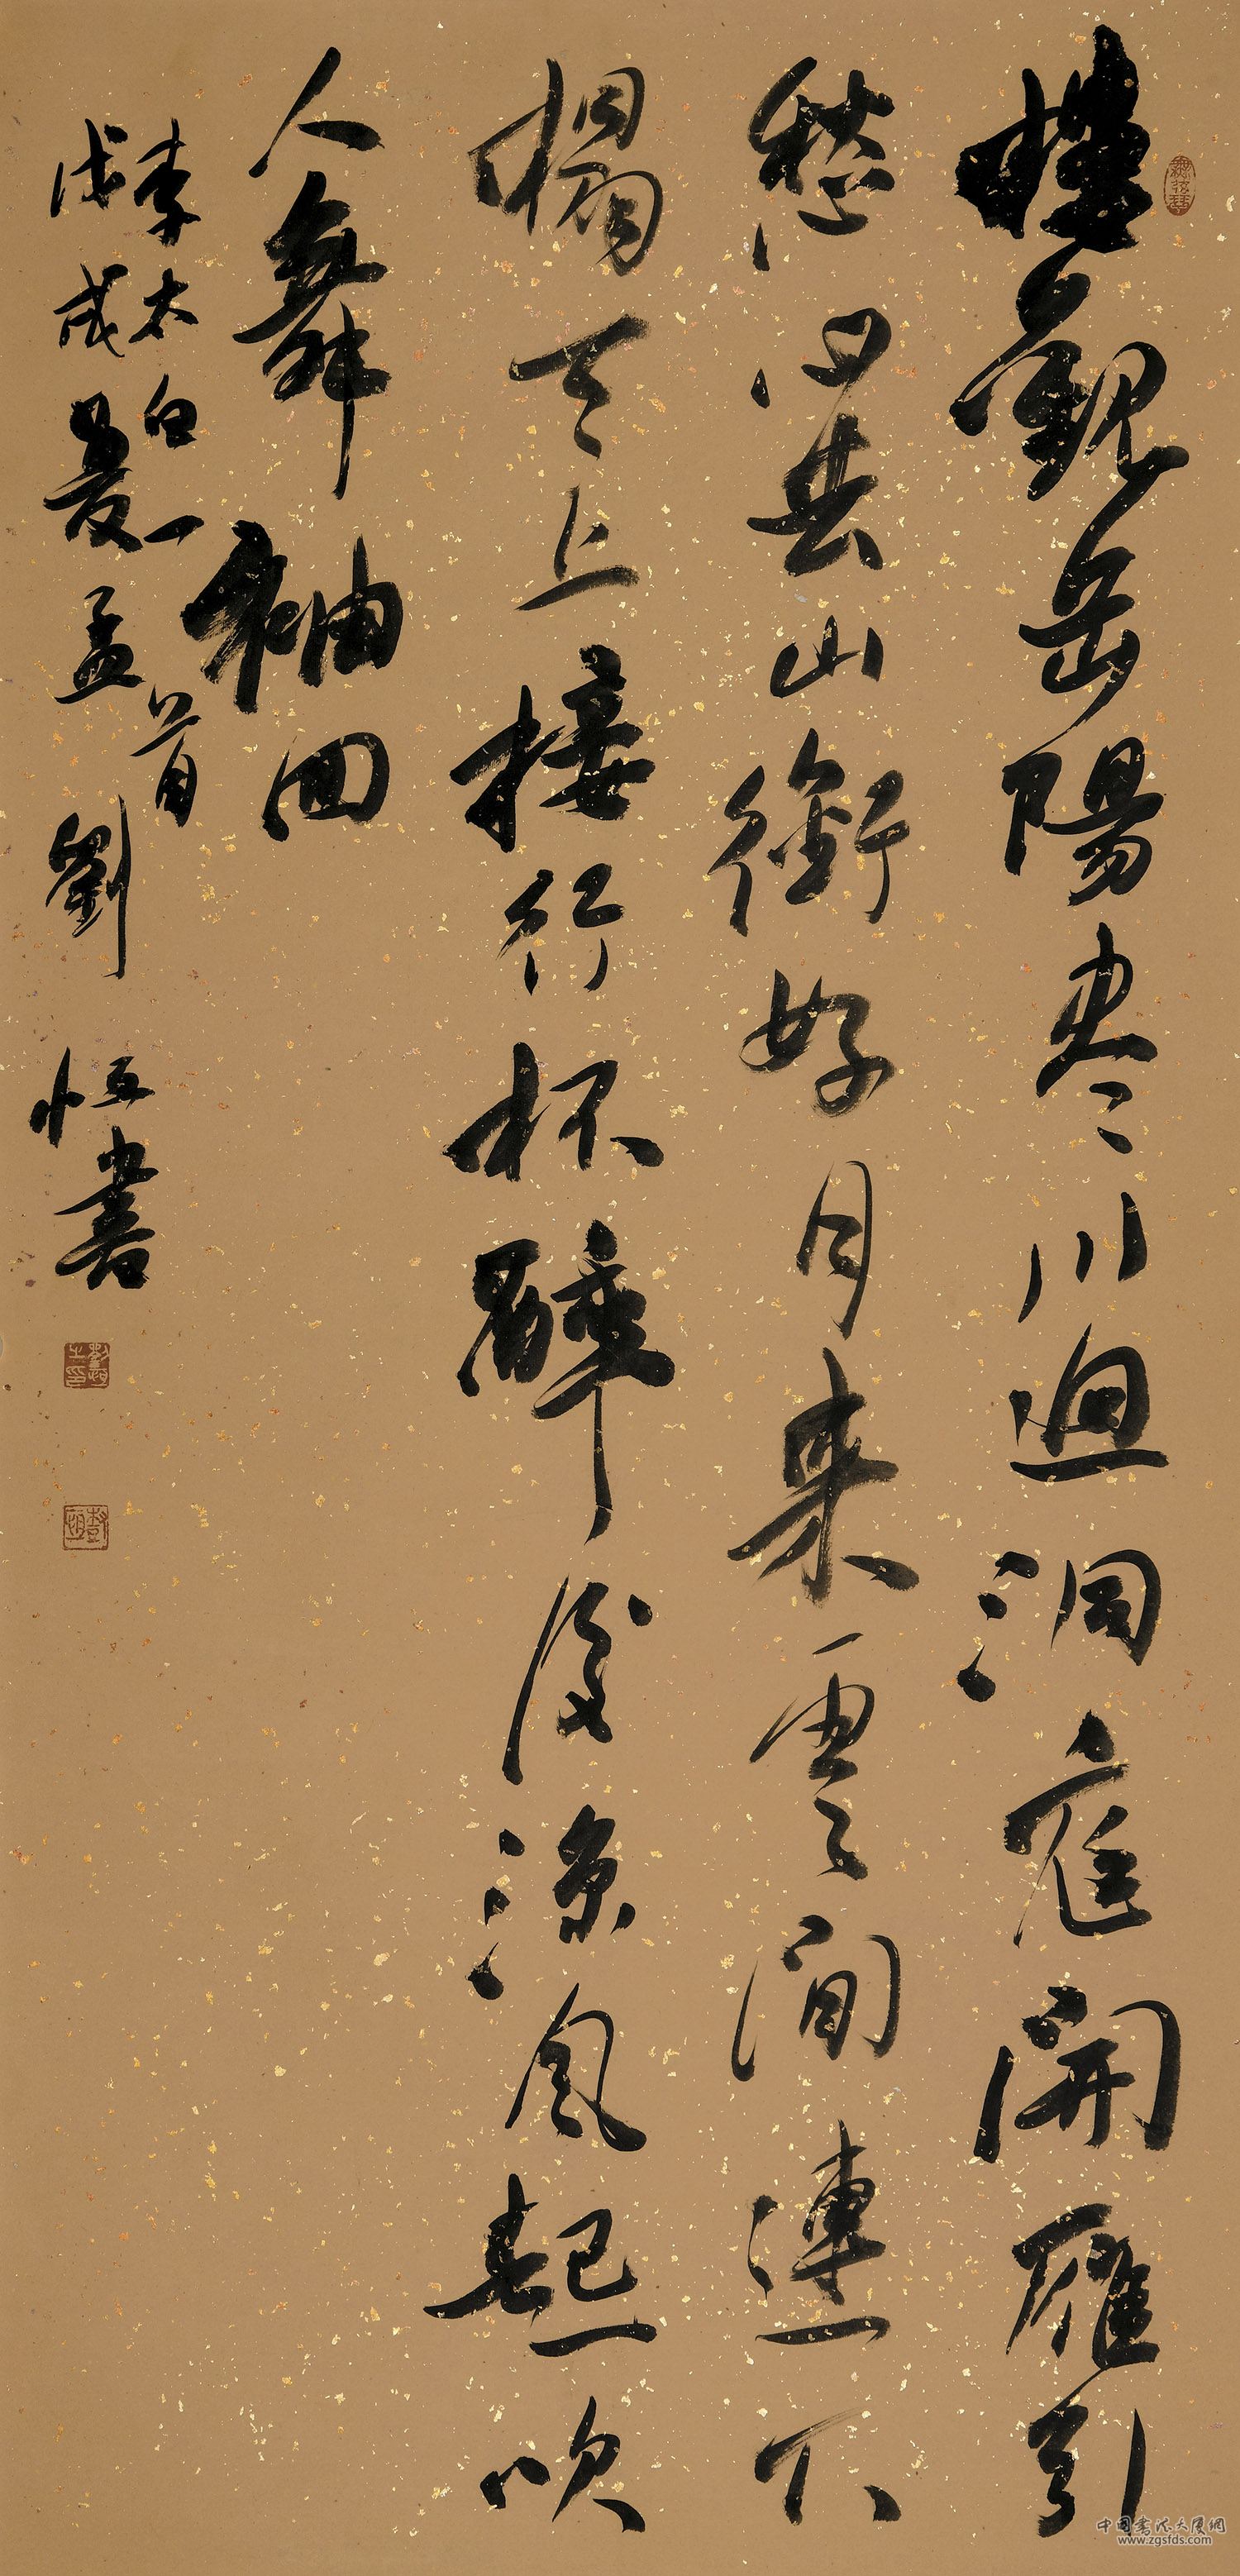 樓觀岳陽尽川迥洞庭開雁引
愁心去山銜好月来雲間連下
榻天上接行杯醉後涼風起吹
人舞袖回
李太白一首
戊戌夏孟劉恒書
中国书法大厦网
www.zgsfds.com